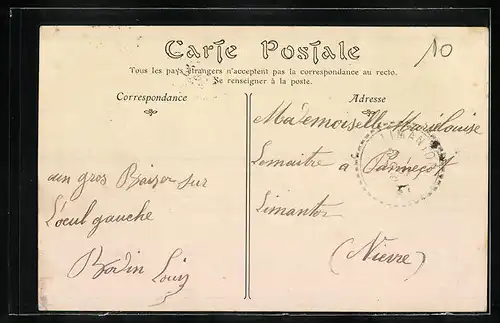 Carte Postale
10
Tous les pays étrangers n'acceptent pas la correspondance au recto.
Se renseigner à la poste.
Correspondance
Adresse
Mademoiselle Marielouise
Lemaitre a Panneçot
Limanton
(Nievre)
aun gros Baiser sur
L'oeul gauche
Bodin Louis
LIMANTON